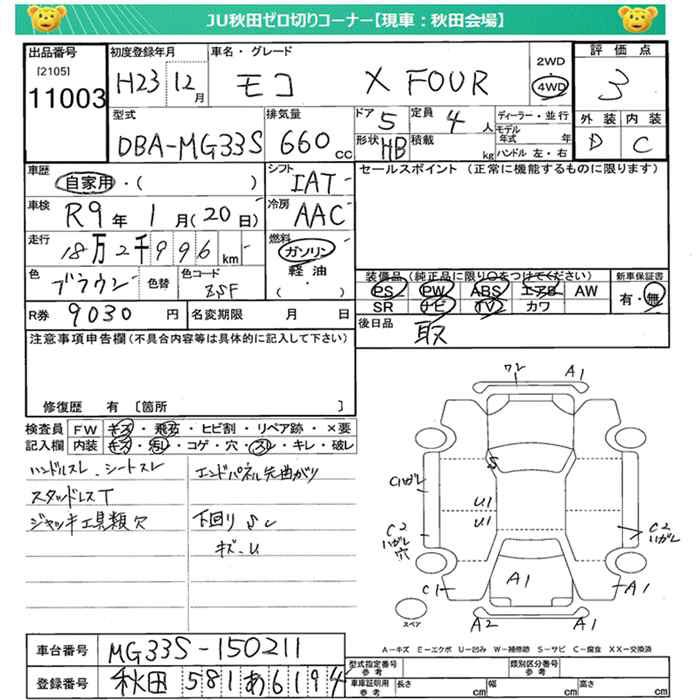 JU秋田ゼロ切りコーナー【現車：秋田会場】
出品番号 [2105] 11003
初度登録年月 H23 12月
車名・グレード モコ X FOUR
2WD 4WD
評価点 3
型式 DBA-MG33S
排気量 660cc
ドア 5
定員 4人
形状 HB
積載 kg
ディーラー・並行
モデル年式 年
ハンドル 左・右
外装 D
内装 C
車歴 自家用・( )
シフト IAT
セールスポイント (正常に機能するものに限ります)
車検 R9年1月(20日)
冷房 AAC
走行 18万2千996km
燃料 ガソリン
軽油・( )
色 ブラウン 色替
色コード ZSF
装備品(純正品に限り○をつけてください)
新車保証書
PS PW ABS エアB AW
有・無
SR ナビ TV カワ
R券 9030円
名変期限 月 日
後日品 取
注意事項申告欄(不具合内容等は具体的に記入して下さい)
修復歴 有 [箇所 ]
検査員記入欄
FW キズ・飛石・ヒビ割・リペア跡・×要
内装 キズ・汚レ・コゲ・穴・スレ・キレ・破レ
ハンドルスレ、シートスレ
エンドパネル先曲がり
スタッドレスT
ジャッキ工具類欠
下回り S
キズ・U
ワレ A1
S
C1ハガレ
U1
U1
C2ハガレ穴
C2ハガレ
C1
A1
A1
A2 A1
スペア
A-キズ E-エクボ U-凹み W-補修跡 S-サビ C-腐食 XX-交換済
車台番号 MG33S-150211
登録番号 秋田 581 あ 6194
型式指定番号 参考
類別区分番号 参考
車庫証明用 参考
長さ cm
幅 cm
高さ cm